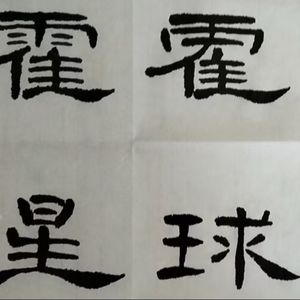 霍霍
星球